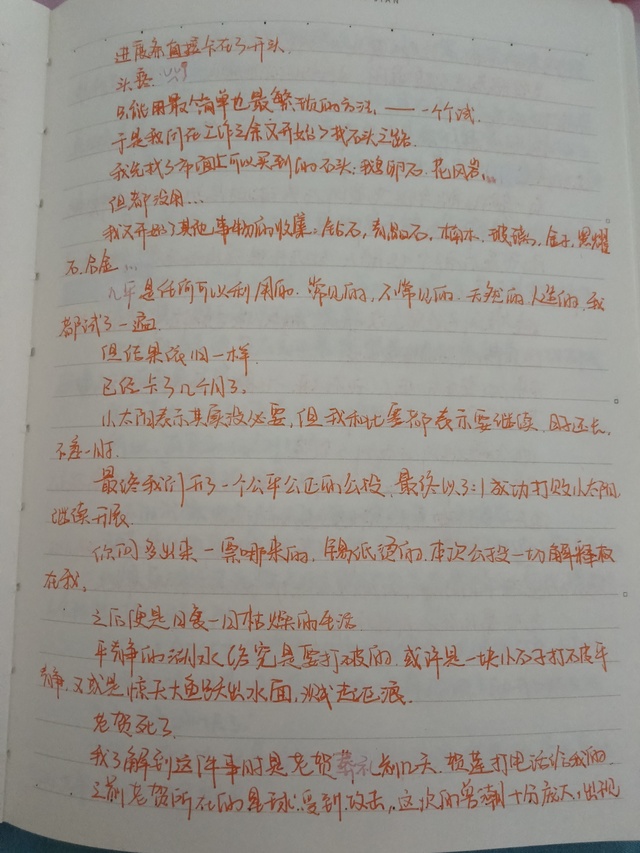 进展条直接卡在了开头.
头要
只能用最简单也最繁琐的方法 —— 一个个试.
于是我们在工作之余又开始了找石头之路.
我先找了市面上可以买到的石头: 鹅卵石. 花岗岩...
但都没用...
我又开始了其他事物的收集: 钻石, 青晶石, 桐木, 玻璃, 金子, 黑耀
石. 合金...
几乎是任何可以利用的. 常见的, 不常见的. 天然的. 人造的, 我
都试了一遍.
但结果依旧一样.
已经卡了几个月了.
小太阳表示其实没必要, 但我和比要都表示要继续. 日子还长,
不差一时.
最终我们开了一个公平公正的公投. 最终以3:1成功打败小太阳,
继续开展.
你问多出来一票哪来的, 本次公投一切解释权
在我.
之后便是日复一日枯燥的生活
平静的湖水终究是要打破的. 或许是一块小石子打破平
静. 又或是惊天大鱼跃出水面, 溅起涟漪.
老贺死了.
我了解到这件事时是老贺葬礼前几天. 打电话给我的
之前老贺所在的星球受到攻击, 这次的兽潮十分庞大, 出现